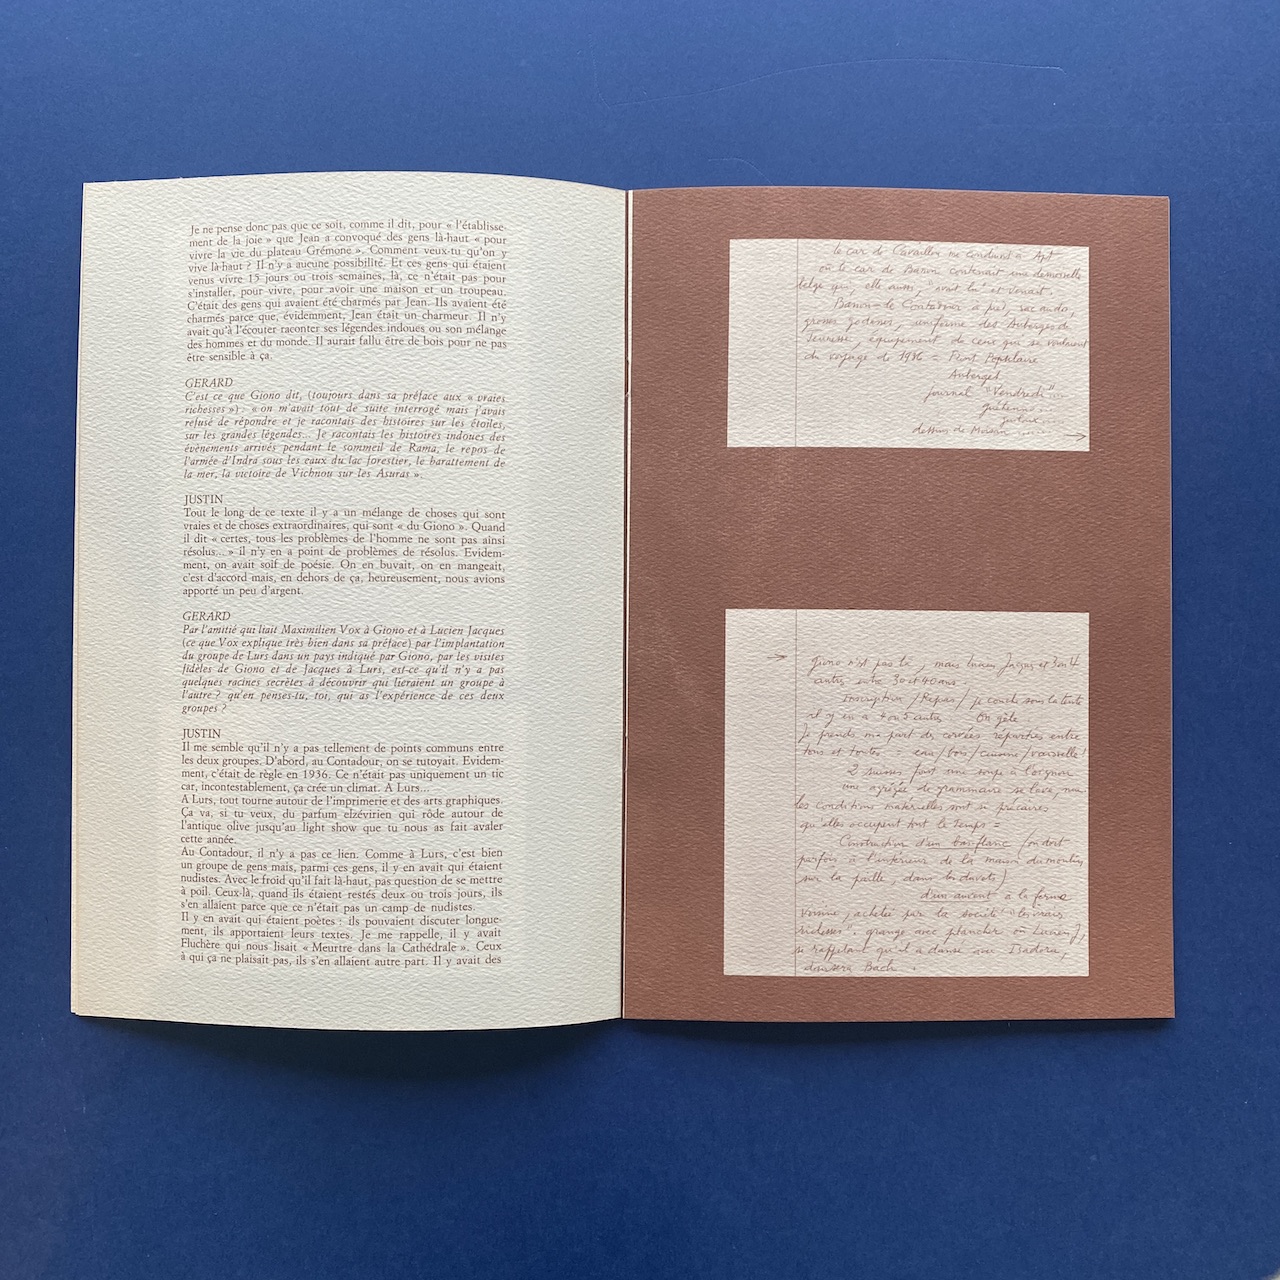 Je ne pense donc pas que ce soit, comme il dit, pour « l'établisse-
ment de la joie » que Jean a convoqué des gens là-haut « pour
vivre la vie du plateau Grémone ». Comment veux-tu qu'on y
vive là-haut ? Il n'y a aucune possibilité. Et ces gens qui étaient
venus vivre 15 jours ou trois semaines, là, ce n'était pas pour
s'installer, pour vivre, pour avoir une maison et un troupeau.
C'était des gens qui avaient été charmés par Jean. Ils avaient été
charmés parce que, évidemment, Jean était un charmeur. Il n'y
avait qu'à l'écouter raconter ses légendes indoues ou son mélange
des hommes et du monde. Il aurait fallu être de bois pour ne pas
être sensible à ça.
GERARD
C'est ce que Giono dit, (toujours dans sa préface aux « vraies
richesses ») : « on m'avait tout de suite interrogé mais j'avais
refusé de répondre et je racontais des histoires sur les étoiles,
sur les grandes légendes... Je racontais les histoires indoues des
évènements arrivés pendant le sommeil de Rama, le repos de
l'armée d'Indra sous les eaux du lac forestier, le barattement de
la mer, la victoire de Vichnou sur les Asuras ».
JUSTIN
Tout le long de ce texte il y a un mélange de choses qui sont
vraies et de choses extraordinaires, qui sont « du Giono ». Quand
il dit « certes, tous les problèmes de l'homme ne sont pas ainsi
résolus... » il n'y en a point de problèmes de résolus. Evidem-
ment, on avait soif de poésie. On en buvait, on en mangeait,
c'est d'accord mais, en dehors de ça, heureusement, nous avions
apporté un peu d'argent.
GERARD
Par l'amitié qui liait Maximilien Vox à Giono et à Lucien Jacques
(ce que Vox explique très bien dans sa préface) par l'implantation
du groupe de Lurs dans un pays indiqué par Giono, par les visites
fidèles de Giono et de Jacques à Lurs, est-ce qu'il n'y a pas
quelques racines secrètes à découvrir qui lieraient un groupe à
l'autre ? qu'en penses-tu, toi, qui as l'expérience de ces deux
groupes ?
JUSTIN
Il me semble qu'il n'y a pas tellement de points communs entre
les deux groupes. D'abord, au Contadour, on se tutoyait. Evidem-
ment, c'était de règle en 1936. Ce n'était pas uniquement un tic
car, incontestablement, ça crée un climat. A Lurs...
A Lurs, tout tourne autour de l'imprimerie et des arts graphiques.
Ça va, si tu veux, du parfum elzévirien qui rôde autour de
l'antique olive jusqu'au light show que tu nous as fait avaler
cette année.
Au Contadour, il n'y a pas ce lien. Comme à Lurs, c'est bien
un groupe de gens mais, parmi ces gens, il y en avait qui étaient
nudistes. Avec le froid qu'il fait là-haut, pas question de se mettre
à poil. Ceux-là, quand ils étaient restés deux ou trois jours, ils
s'en allaient parce que ce n'était pas un camp de nudistes.
Il y en avait qui étaient poètes : ils pouvaient discuter longue-
ment, ils apportaient leurs textes. Je me rappelle, il y avait
Fluchère qui nous lisait « Meurtre dans la Cathédrale ». Ceux
à qui ça ne plaisait pas, ils s'en allaient autre part. Il y avait des
le car de Cavaillon me conduit à Apt
où le car de Banon contenait une demoiselle
belge qui, elle aussi, avait lu et venait.
Banon-le Contadour à pied, sac au dos,
grosses godasses, uniforme des Auberges de
Jeunesse, équipement de ceux qui se voulaient
du voyage de 1936 = Front Populaire
Auberges
journal "Vendredi"...
Guéhenno...
dessins de
→
→ Giono n'est pas là, mais Lucien Jacques et 3 ou 4
autres entre 30 et 40 ans
Inscription / Repas / je couche sous la tente
il y en a 4 ou 5 autres On gèle.
Je prends ma part de corvées réparties entre
tous et toutes = eau / bois / cuisine / vaisselle !
2 suisses font une soupe à l'oignon
une agrégée de grammaire se lave, nue
les conditions matérielles sont si précaires
qu'elles occupent tout le temps =
Construction d'un bas-flanc (on dort
parfois à l'intérieur de la maison du moulin
sur la paille dans les duvets)
d'un auvent à la ferme
voisine, achetée par la société "les vraies
richesses". grange avec plancher où Lucien J,
se rappelant qu'il a dansé avec Isadora,
dansera Bach.